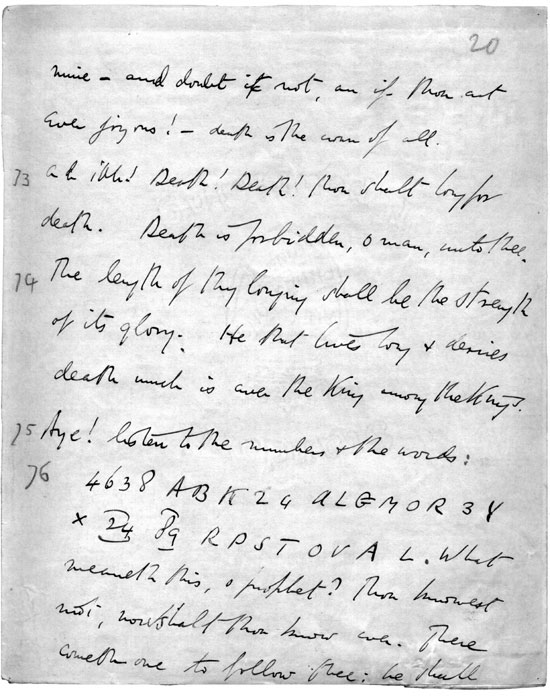 20
mine - and doubt it not, an if thou art
ever joyous! - death is the crown of all.
73 ah! ah! Death! Death! thou shalt long for
death. Death is forbidden, o man, unto thee.
74 The length of thy longing shall be the strength
of its glory. He that lives long & desires
death much is ever the King among the Kings.
75 Aye! listen to the numbers & the words:
76 4638 ABK 24 ALGMOR 3Y
x 24 89 RPSTOVAL. What
meaneth this, o prophet? Thou knowest
not, nor shalt thou know ever. There
cometh one to follow thee: he shall